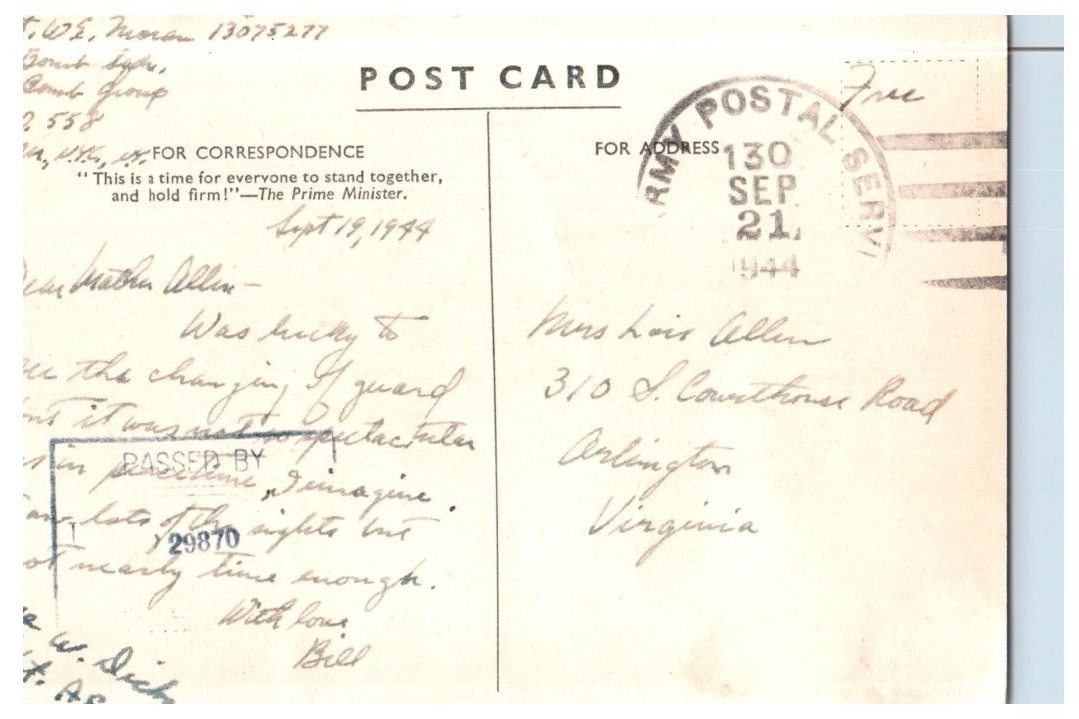 W.E. Moran 13075277
Bomb
Bomb Group
558
N.Y.C., N.Y.
POST CARD
Free
FOR CORRESPONDENCE
"This is a time for everyone to stand together,
and hold firm!"—The Prime Minister.
Sept 19, 1944
Dear Mother Allen —
Was lucky to
see the changing of guard
but it was not so spectacular
as in peacetime, I imagine.
Saw lots of the sights but
not nearly time enough.
With love
Bill
PASSED BY
29870
W. Dick
FOR ADDRESS
ARMY POSTAL SERVI
130
SEP
21
1944
Mrs Lois Allen
310 S. Courthouse Road
Arlington
Virginia